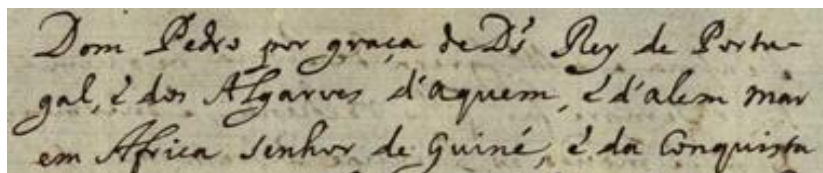 Dom Pedro por graça de D.s Rey de Portu-
gal, è dos Algarves d'aquem, è d'alem mar
em Africa senhor de Guiné, è da Conquista